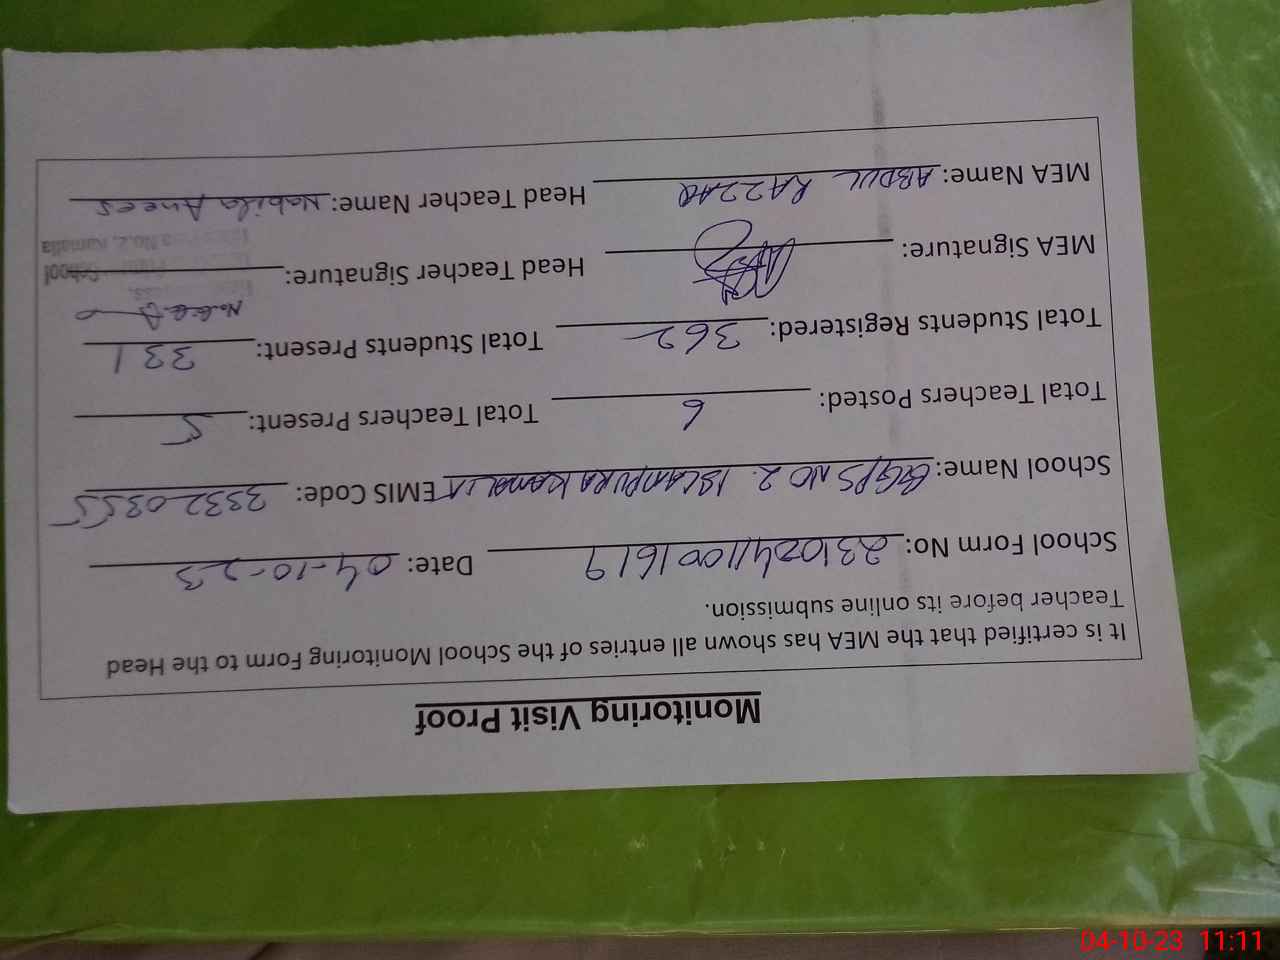 Monitoring Visit Proof
It is certified that the MEA has shown all entries of the School Monitoring Form to the Head
Teacher before its online submission.
School Form No: 2310041001619 Date: 04-10-23
School Name: GGPS NO 2. ISLAMPURA KAMALIA EMIS Code: 33320355
Total Teachers Posted: 6 Total Teachers Present: 5
Total Students Registered: 362 Total Students Present: 331
MEA Signature: Head Teacher Signature:
School
No.2, Kamalia
MEA Name: ABDUL RAZZAQ Head Teacher Name: Nabila Anees
04-10-23 11:11